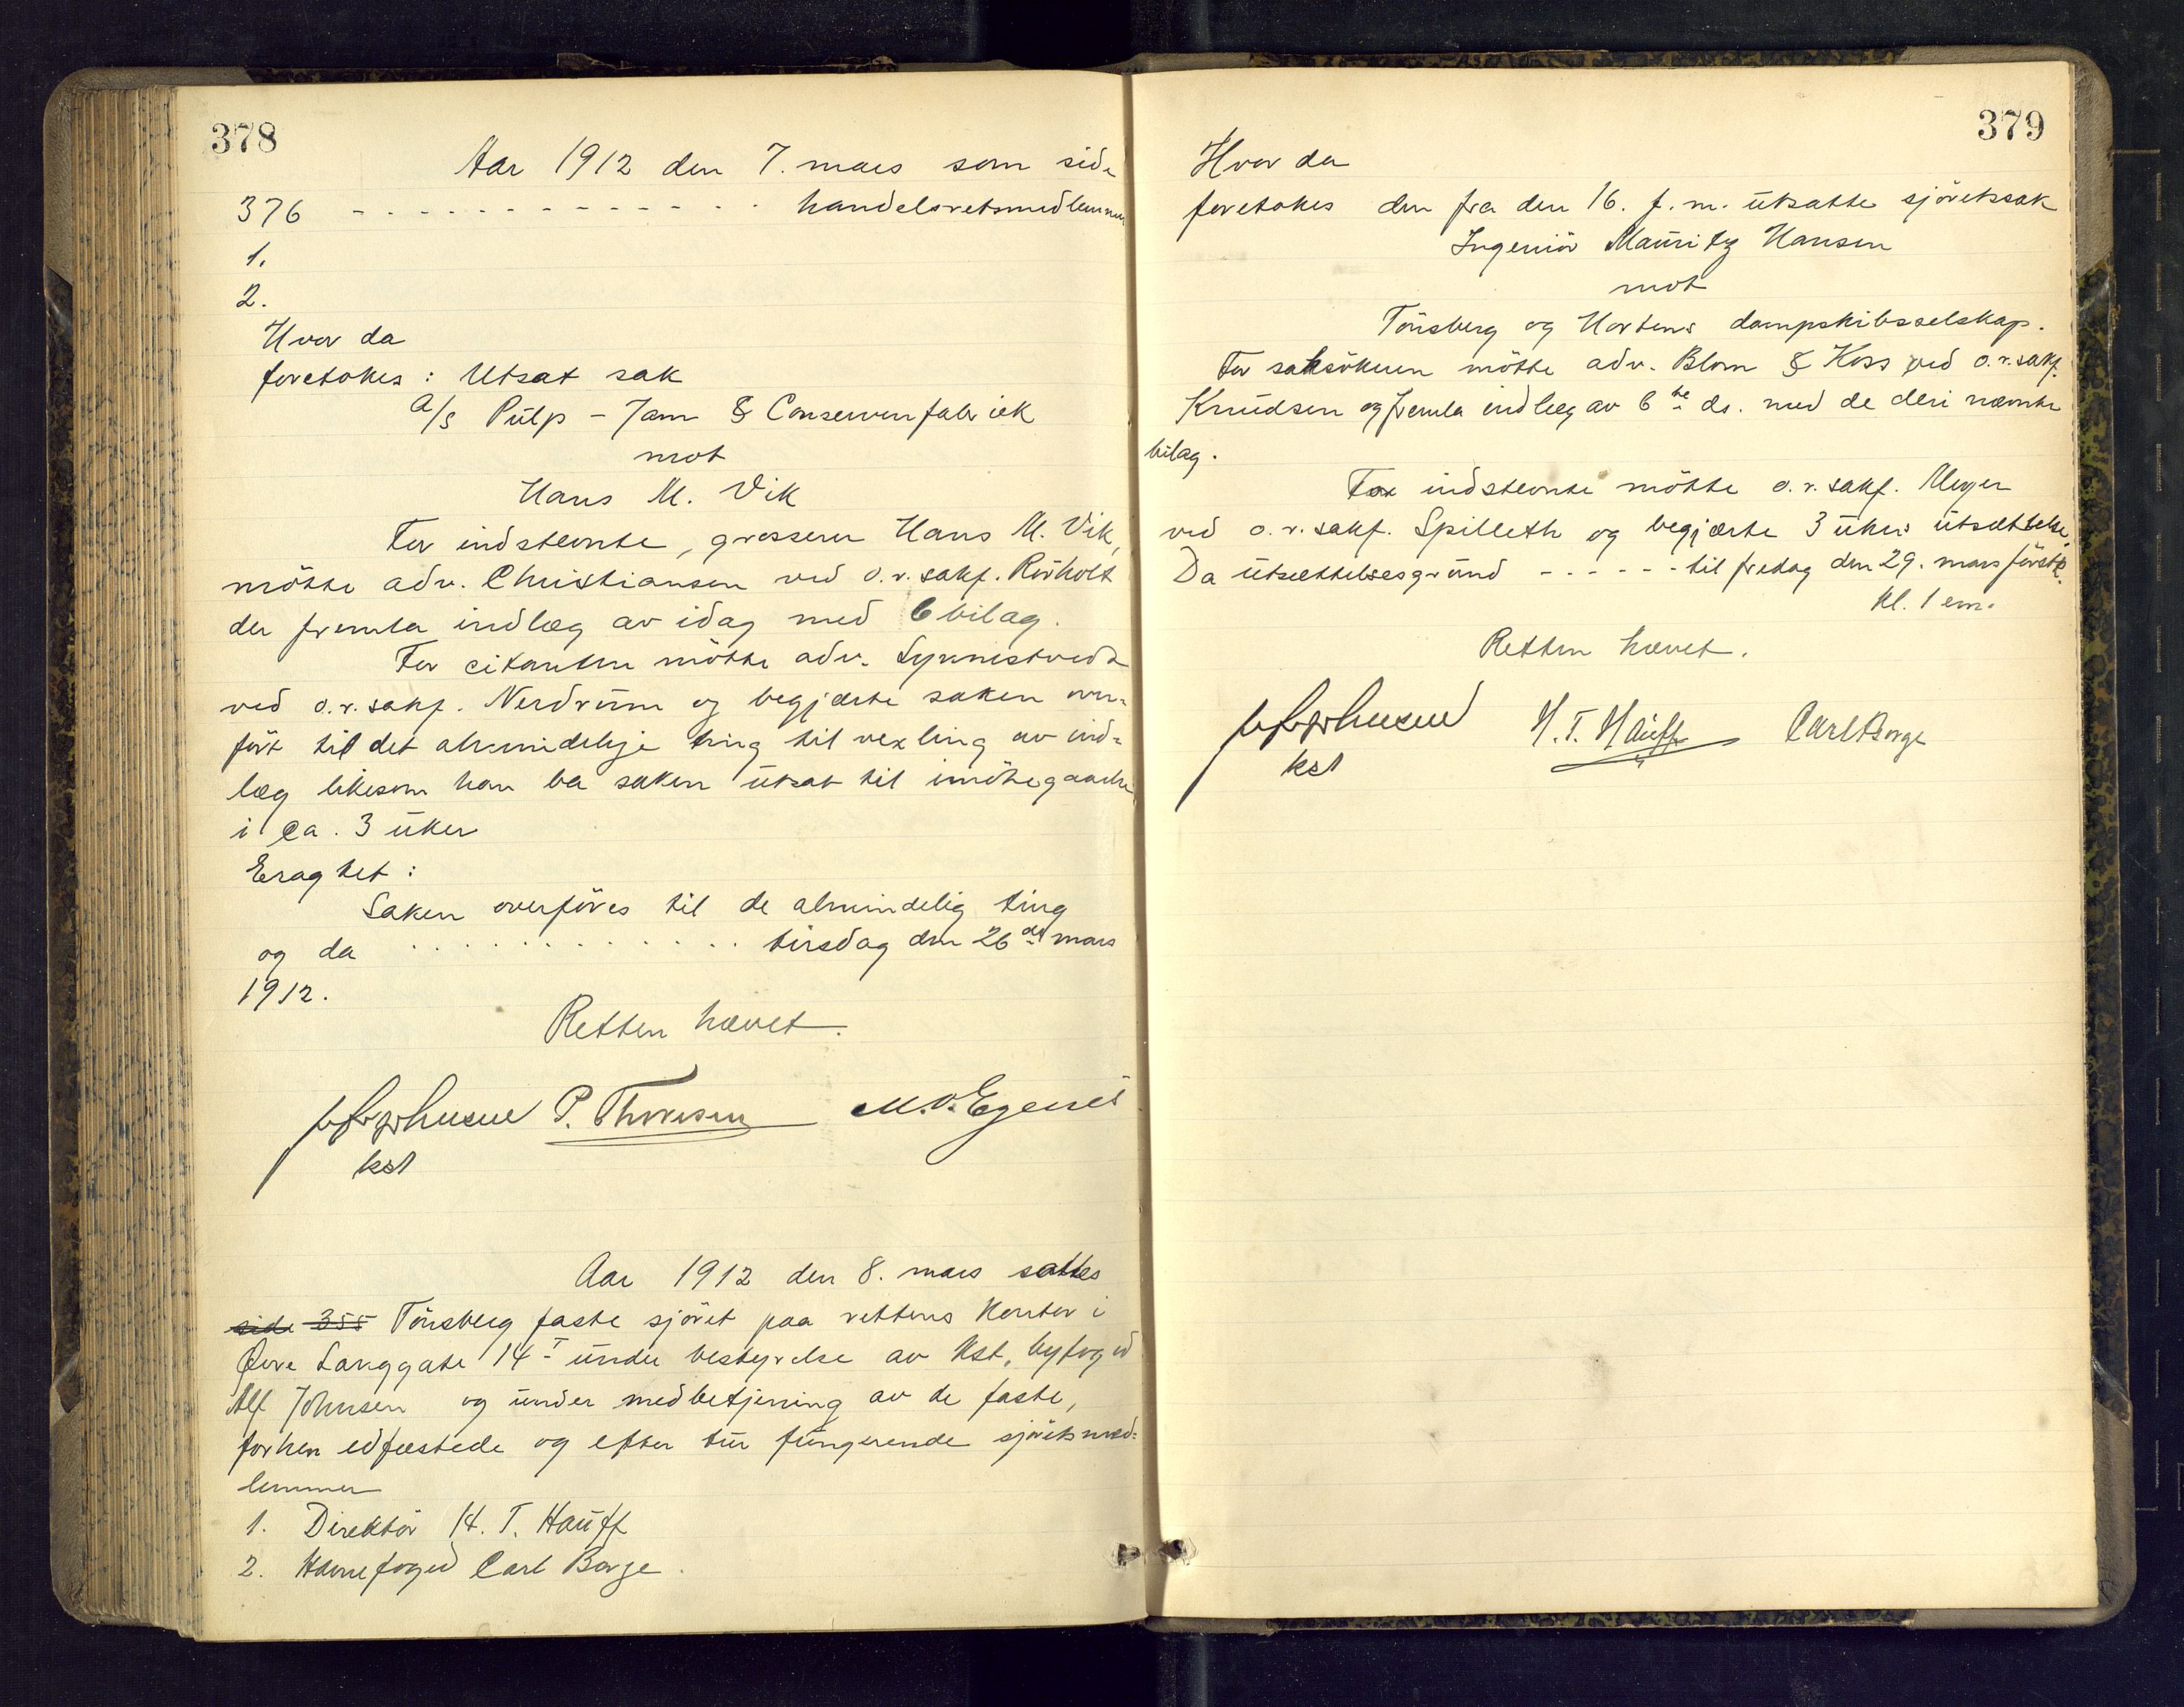 378
Aar 1912 den 7. mars som side
376 - - - - - - - - - - - - - handelsretsmedlemmer
1.
2.
Hvor da
foretokes : Utsat sak
A/S Pulp - Jam & Conservenfabriek
mot
Hans M. Vik
For indstevnte, grosserer Hans M. Vik,
møtte adv. Christiansen ved o.r.sakf. Rørholt
der fremla indlæg av idag med 6 bilag.
For citanten møtte adv. Lynnestvedt
ved o.r.sakf. Nerdrum og begjærte saken over-
ført til det almindelige ting til vexling av ind-
læg likesom han ba saken utsat til imøtegaaelse
i ca. 3 uker
Eragtet :
Saken overføres til de almindelig ting
og da . . . . . . . . . . . . . tirsdag den 26de mars
1912.
Retten hævet.
Johnsen P. Thoresen M. O. Egenes
kst
Aar 1912 den 8. mars sattes
side 355 Tönsberg faste sjöret paa rettens kontor i
Øvre Langgate 14 I under bestyrelse av kst. byfoged
Alf Johnsen og under medbetjening av de faste,
forhen edfæstede og efter tur fungerende sjöretsmed-
lemmer
1. Direktör H. T. Hauff
2. Havnefoged Carl Borge.
379
Hvor da
foretokes den fra den 16. f.m. utsatte sjöretssak
Ingeniör Mauritz Hansen
mot
Tönsberg og Hortens dampskibsselskap.
For saksökeren mötte adv. Blom & Koss ved o.r.sakf.
Knudsen og fremla indlæg av 6te ds. med de deri nævnte
bilag.
For indstevnte mötte o.r.sakf. Meyer
ved o.r.sakf. Spilleth og begjærte 3 ukers utsættelse.
Da utsættelsesgrund - - - - - - til fredag den 29. mars förstk.
kl. 1 em.
Retten hævet.
Johnsen H. T. Hauff Carl Borge
kst